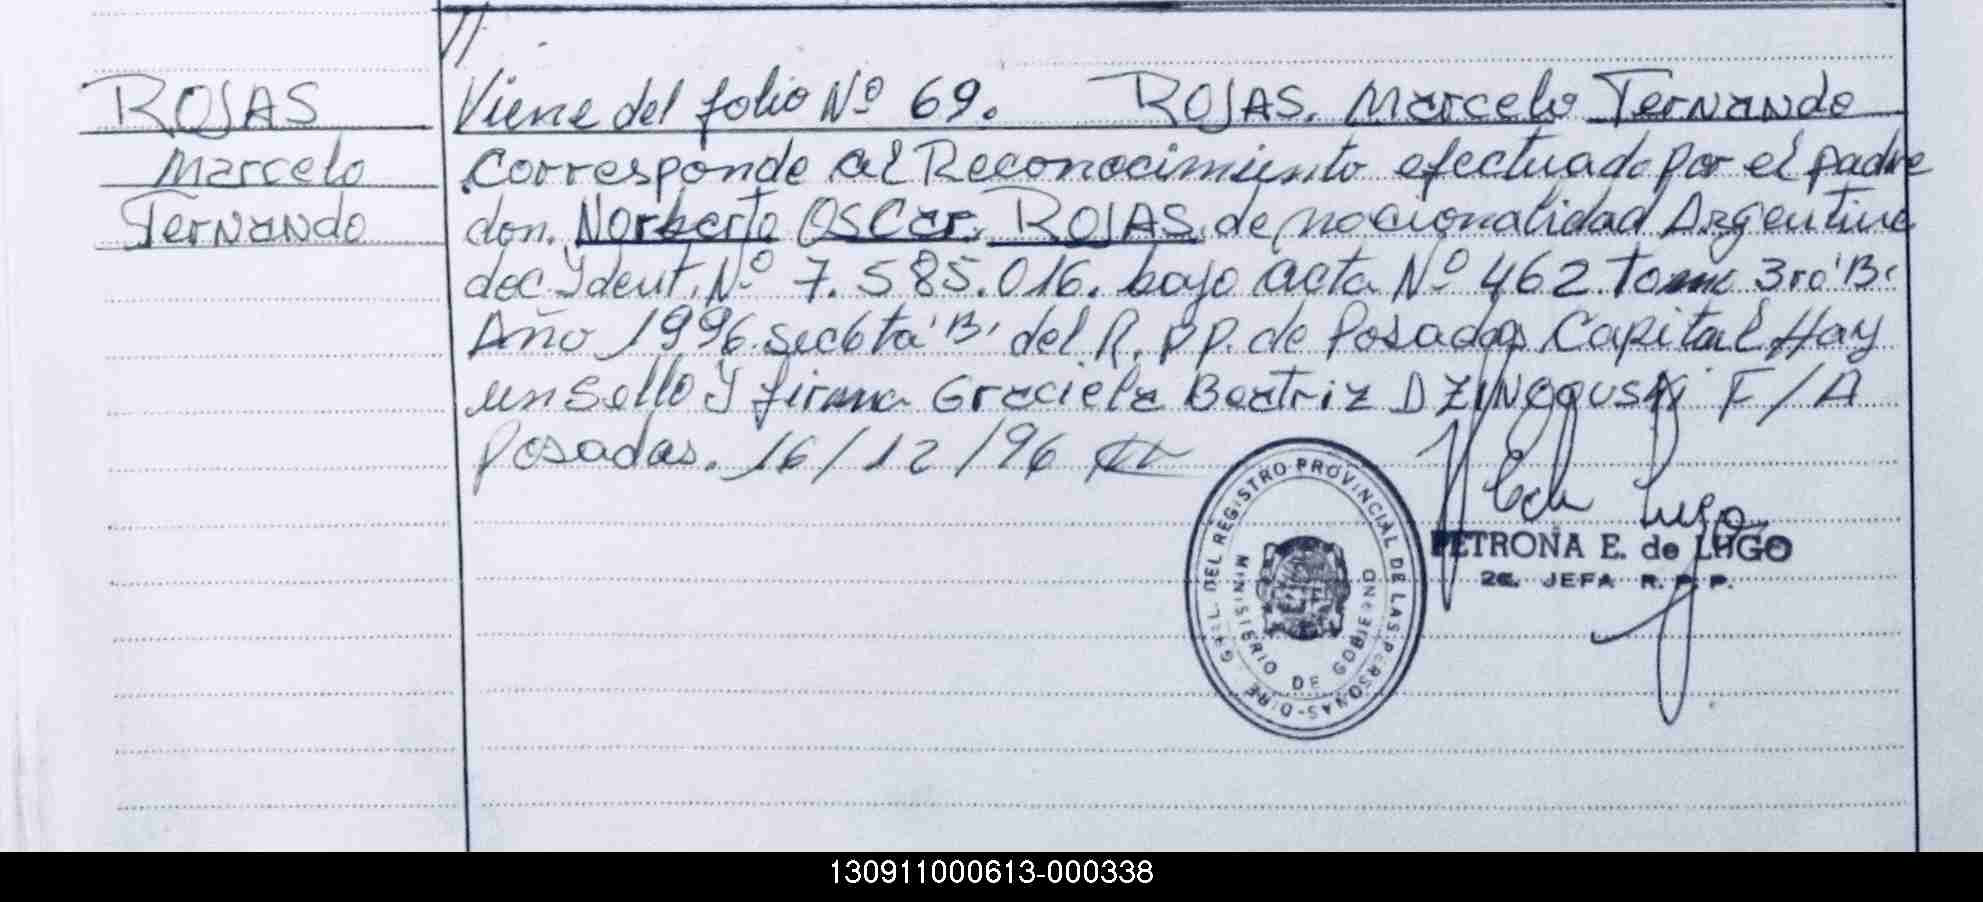 ROJAS
Marcelo
Fernando
Viene del folio Nº 69. ROJAS. Marcelo Fernando
Corresponde al Reconocimiento efectuado por el padre
don. Norberto OSCar. ROJAS. de nacionalidad Argentina
doc. Ydent. Nº 7.585.016. bajo acta Nº 462 tomo 3ro 'B'
Año 1996. secc 'B' del R. PP. de Posadas Capital Hay
un Sello y firma Graciela Beatriz F/A
Posadas. 16/12/96
GRAL. DEL REGISTRO PROVINCIAL DE LAS PERSONAS-DIRE
MINISTERIO DE GOBIERNO
PETRONA E. de LUGO
2a. JEFA R. P. P.
130911000613-000338